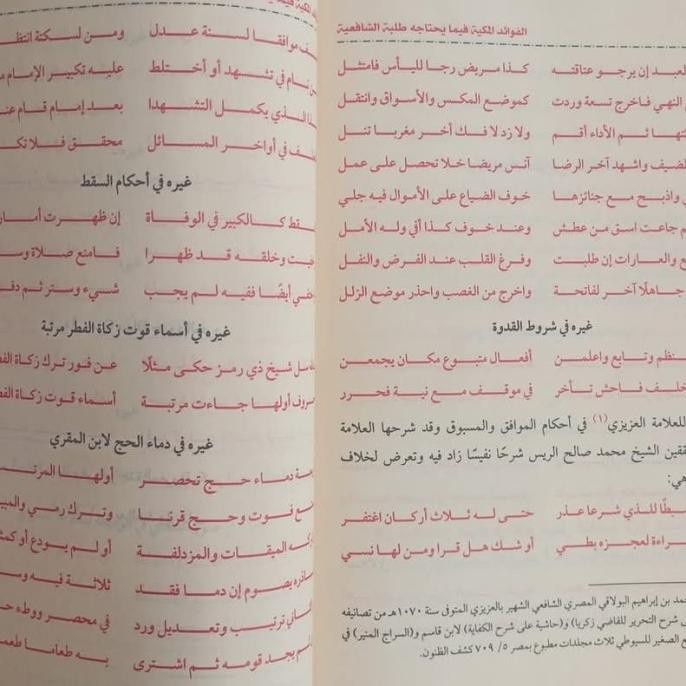 الفوائد المكية فيما يحتاجه طلبة الشافعية
لعبد إن يرجو عناقته كذا مريض رجا لليأس فامتثل
النهي فاخرج تسعة وردت كموضع المكس والأسواق وانتقل
ثم الأداء أقم ولا زد لا فك أخر مغربا تنل
لضيف واشهد آخر الرضا آنس مريضا خلا تحصل على عمل
واذبح مع جنائزها خوف الضياع على الأموال فيه جلي
جاعت اسق من عطش وعند خوف كذا أفي وله الأمل
والعارات إن طلبت وفرغ القلب عند الفرض والنفل
جاهلًا آخر لفاتحة واخرج من الغصب واحذر موضع الزلل
غيره في شروط القدوة
وتابع واعلمن أفعال متبوع مكان يجمعن
خلف فاحش تأخر في موقف مع نية فحرر
للعلامة العزيزي (١) في أحكام الموافق والمسبوق وقد شرحها العلامة
الشيخ محمد صالح الريس شرحًا نفيسًا زاد فيه وتعرض لخلاف
هي:
للذي شرعا عذر حتى له ثلاث أركان اغتفر
لعجزه بطي أو شك هل قرا ومن لها نسي
بن إبراهيم البولاقي المصري الشافعي الشهير بالعزيزي المتوفى سنة ١٠٧٠هـ من تصانيفه
شرح التحرير للقاضي زكريا) و(حاشية على شرح الكفاية) لابن قاسم و(السراج المنير) في
الصغير للسيوطي ثلاث مجلدات مطبوع بمصر ٥/ ٧٠٩ كشف الظنون.
موافقا لسنة عدل ومن لسكتة
في تشهد أو أختلط عليه تكبير الإمام
الذي يكمل التشهدا بعد إمام قام
في أواخر المسائل محقق فلا
غيره في أحكام السقط
كالكبير في الوفاة إن ظهرت
وخلقه قد ظهرا فامنع صلاة
أيضًا ففيه لم يجب شيء وستر ثم
غيره في أسماء قوت زكاة الفطر مرتبة
شيخ ذي رمز حكى مثلًا عن فور ترك زكاة
أولها جاءت مرتبة أسماء قوت زكاة
غيره في دماء الحج لابن المقري
دماء حج تحصر أولها
فوت وحج قرنا وترك رمي
الميقات والمزدلفة أو لم يودع أو
يصوم إن دما فقد ثلاثة فيه
ترتيب وتعديل ورد في محصر ووطء
يجد قومه ثم اشترى به طعاما